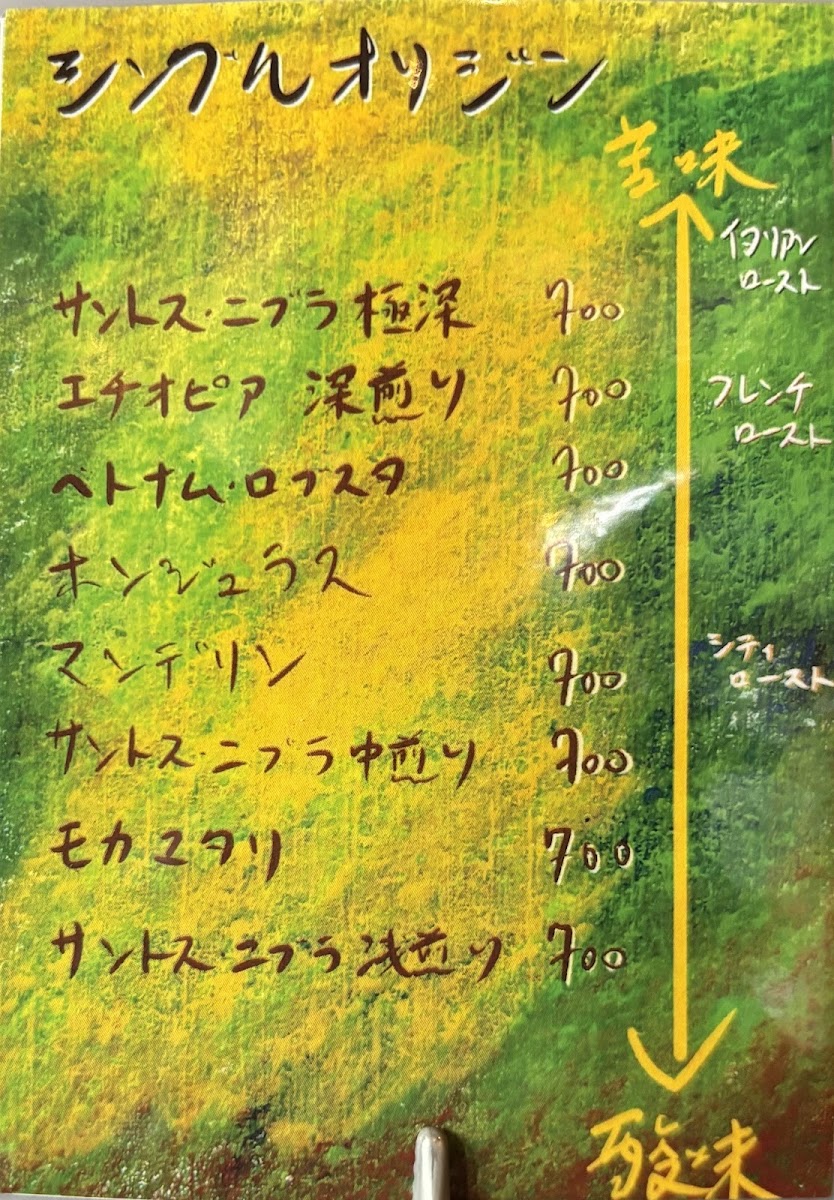 シングルオリジン
苦味
イタリアン
ロースト
サントス・ニブラ極深 700
エチオピア 深煎り 700
フレンチ
ロースト
ベトナム・ロブスタ 700
ホンジュラス 700
マンデリン 700
シティ
ロースト
サントス・ニブラ中煎り 700
モカマタリ 700
サントス・ニブラ浅煎り 700
酸味